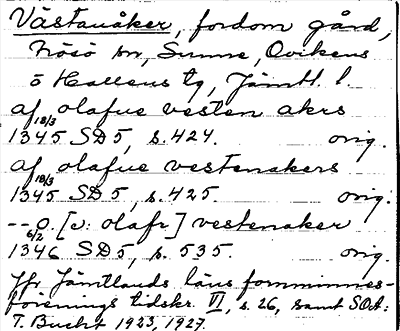 Västanåker, fordom gård,
Frösö sn, Sunne, Ovikens
o Hallens tg, Jämtl. l.
af olafue vesten akrs
18/3
1345 SD 5, s. 424. orig.
af olafue vestenakers
18/3
1345 SD 5, s. 425. orig.
-- o. [ɔ: olafr] vestenaker
6/2
1346 SD 5, s. 535. orig.
Jfr. Jämtlands läns fornminnes-
förenings tidskr. VI, s. 26, samt SOA:
T. Bucht 1923, 1927.